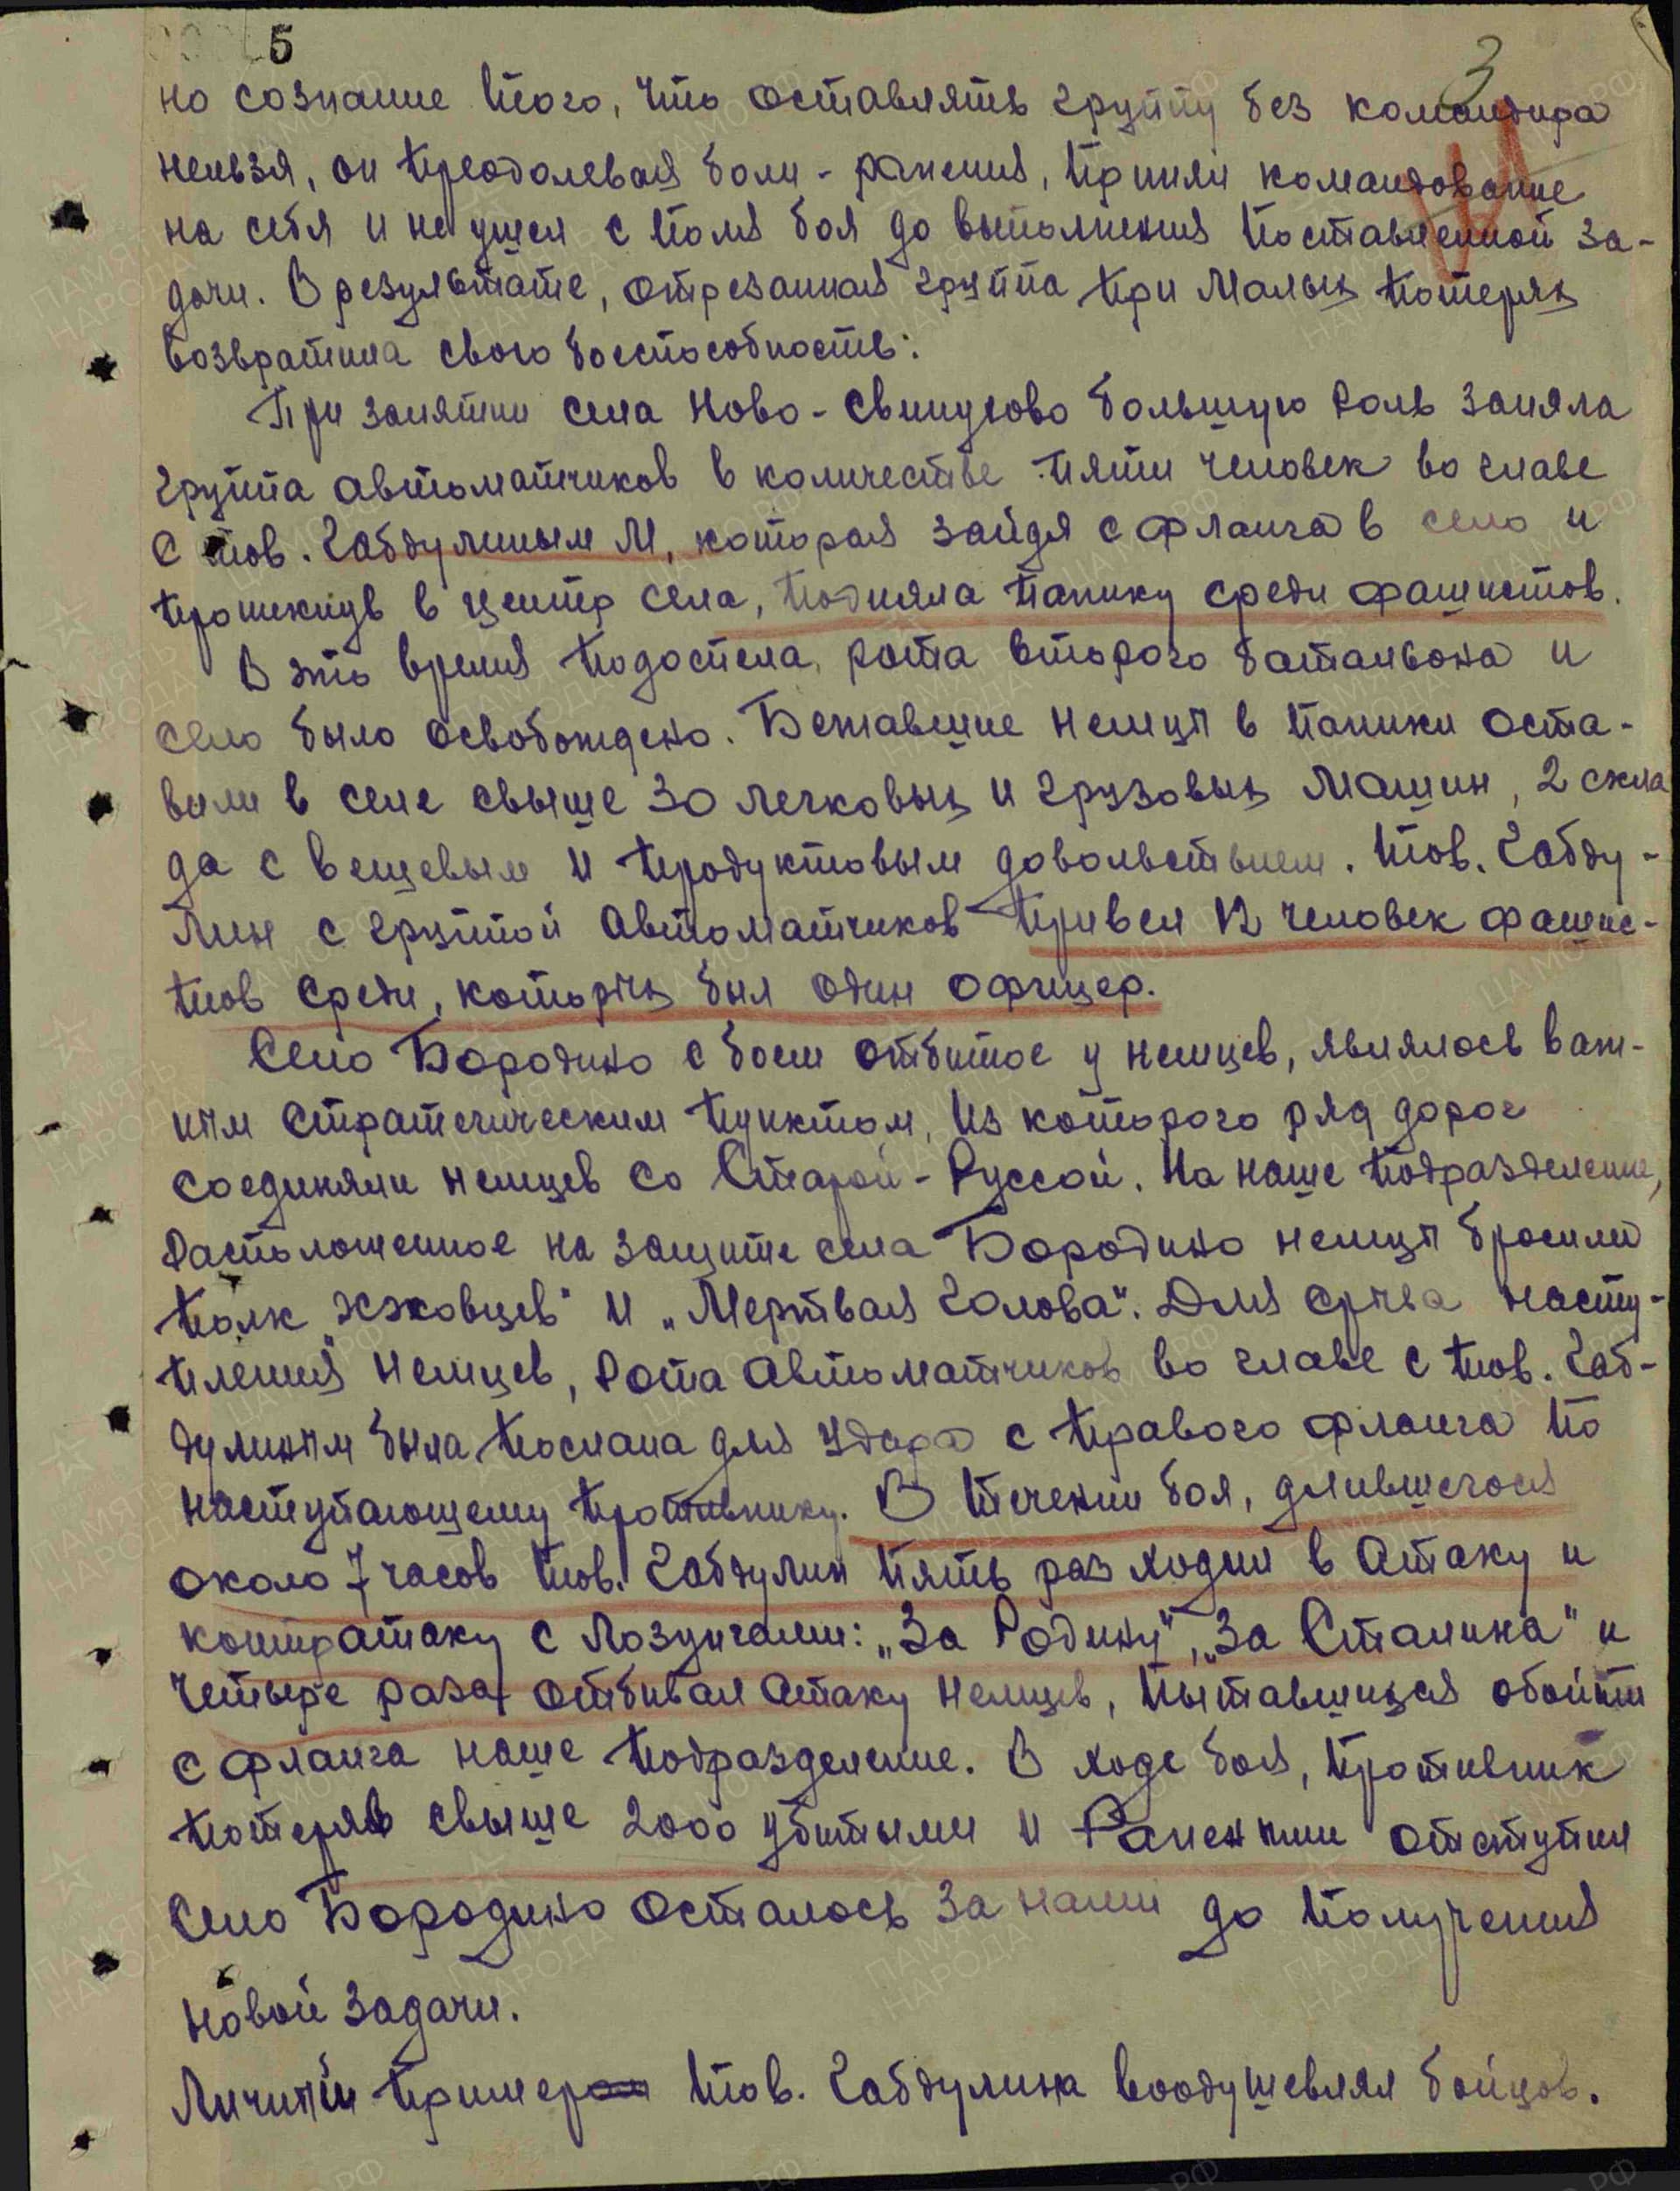 5
3
но сознание того, что оставлять группу без командира
нельзя, он преодолевая боли - ранения, принял командование
на себя и не ушел с поля боя до выполнения поставленной за-
дачи. В результате, отрезанная группа при малых потерях
возвратила свою боеспособность.
При занятии села Ново-Свинухово большую роль заняла
группа автоматчиков в количестве пяти человек во главе
с тов. Габдулиным М, которая зайдя с фланга в село и
проникнув в центр села, подняла панику среди фашистов.
В это время подоспела, рота второго батальона и
село было освобождено. Бежавшие немцы в паники оста-
вили в селе свыше 30 легковых и грузовых машин, 2 скла
да с вещевым и продуктовым довольствием. Тов. Габду-
лин с группой автоматчиков привел 12 человек фашис-
тов среди, которых был один офицер.
Село Бородино с боем отбитое у немцев, являлось важ-
ным стратегическим пунктом, из которого ряд дорог
соединяли немцев со Старой-Руссой. На наше подразделение,
расположенное на защите села Бородино немцы бросили
полк „Эсэсовцев" и „Мертвая голова". Для срыва насту-
пления немцев, рота автоматчиков во главе с тов. Габ-
дулиным была послана для удара с правого фланга по
наступающему противнику. В течении боя, длившегося
около 7 часов тов. Габдулин пять раз ходил в атаку и
контратаку с лозунгами: „За Родину", „За Сталина" и
четыре раза отбивал атаку немцев, пытавшихся обойти
с фланга наше подразделение. В ходе боя, противник
потеряв свыше 2000 убитыми и ранеными отступил
Село Бородино осталось за нами до получения
новой задачи.
Личный пример тов. Габдулина воодушевлял бойцов.
ПАМЯТЬ НАРОДА
ЦА МО РФ